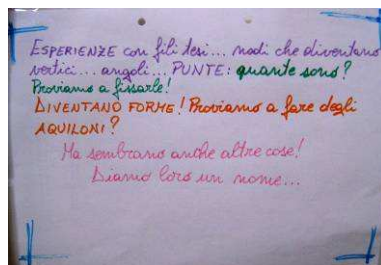 ESPERIENZE con fili tesi... nodi che diventano
vertici... angoli... PUNTE: quante sono?
Proviamo a fissarle!
DIVENTANO FORME! Proviamo a fare degli
AQUILONI?
Ma sembrano anche altre cose!
Diamo loro un nome...